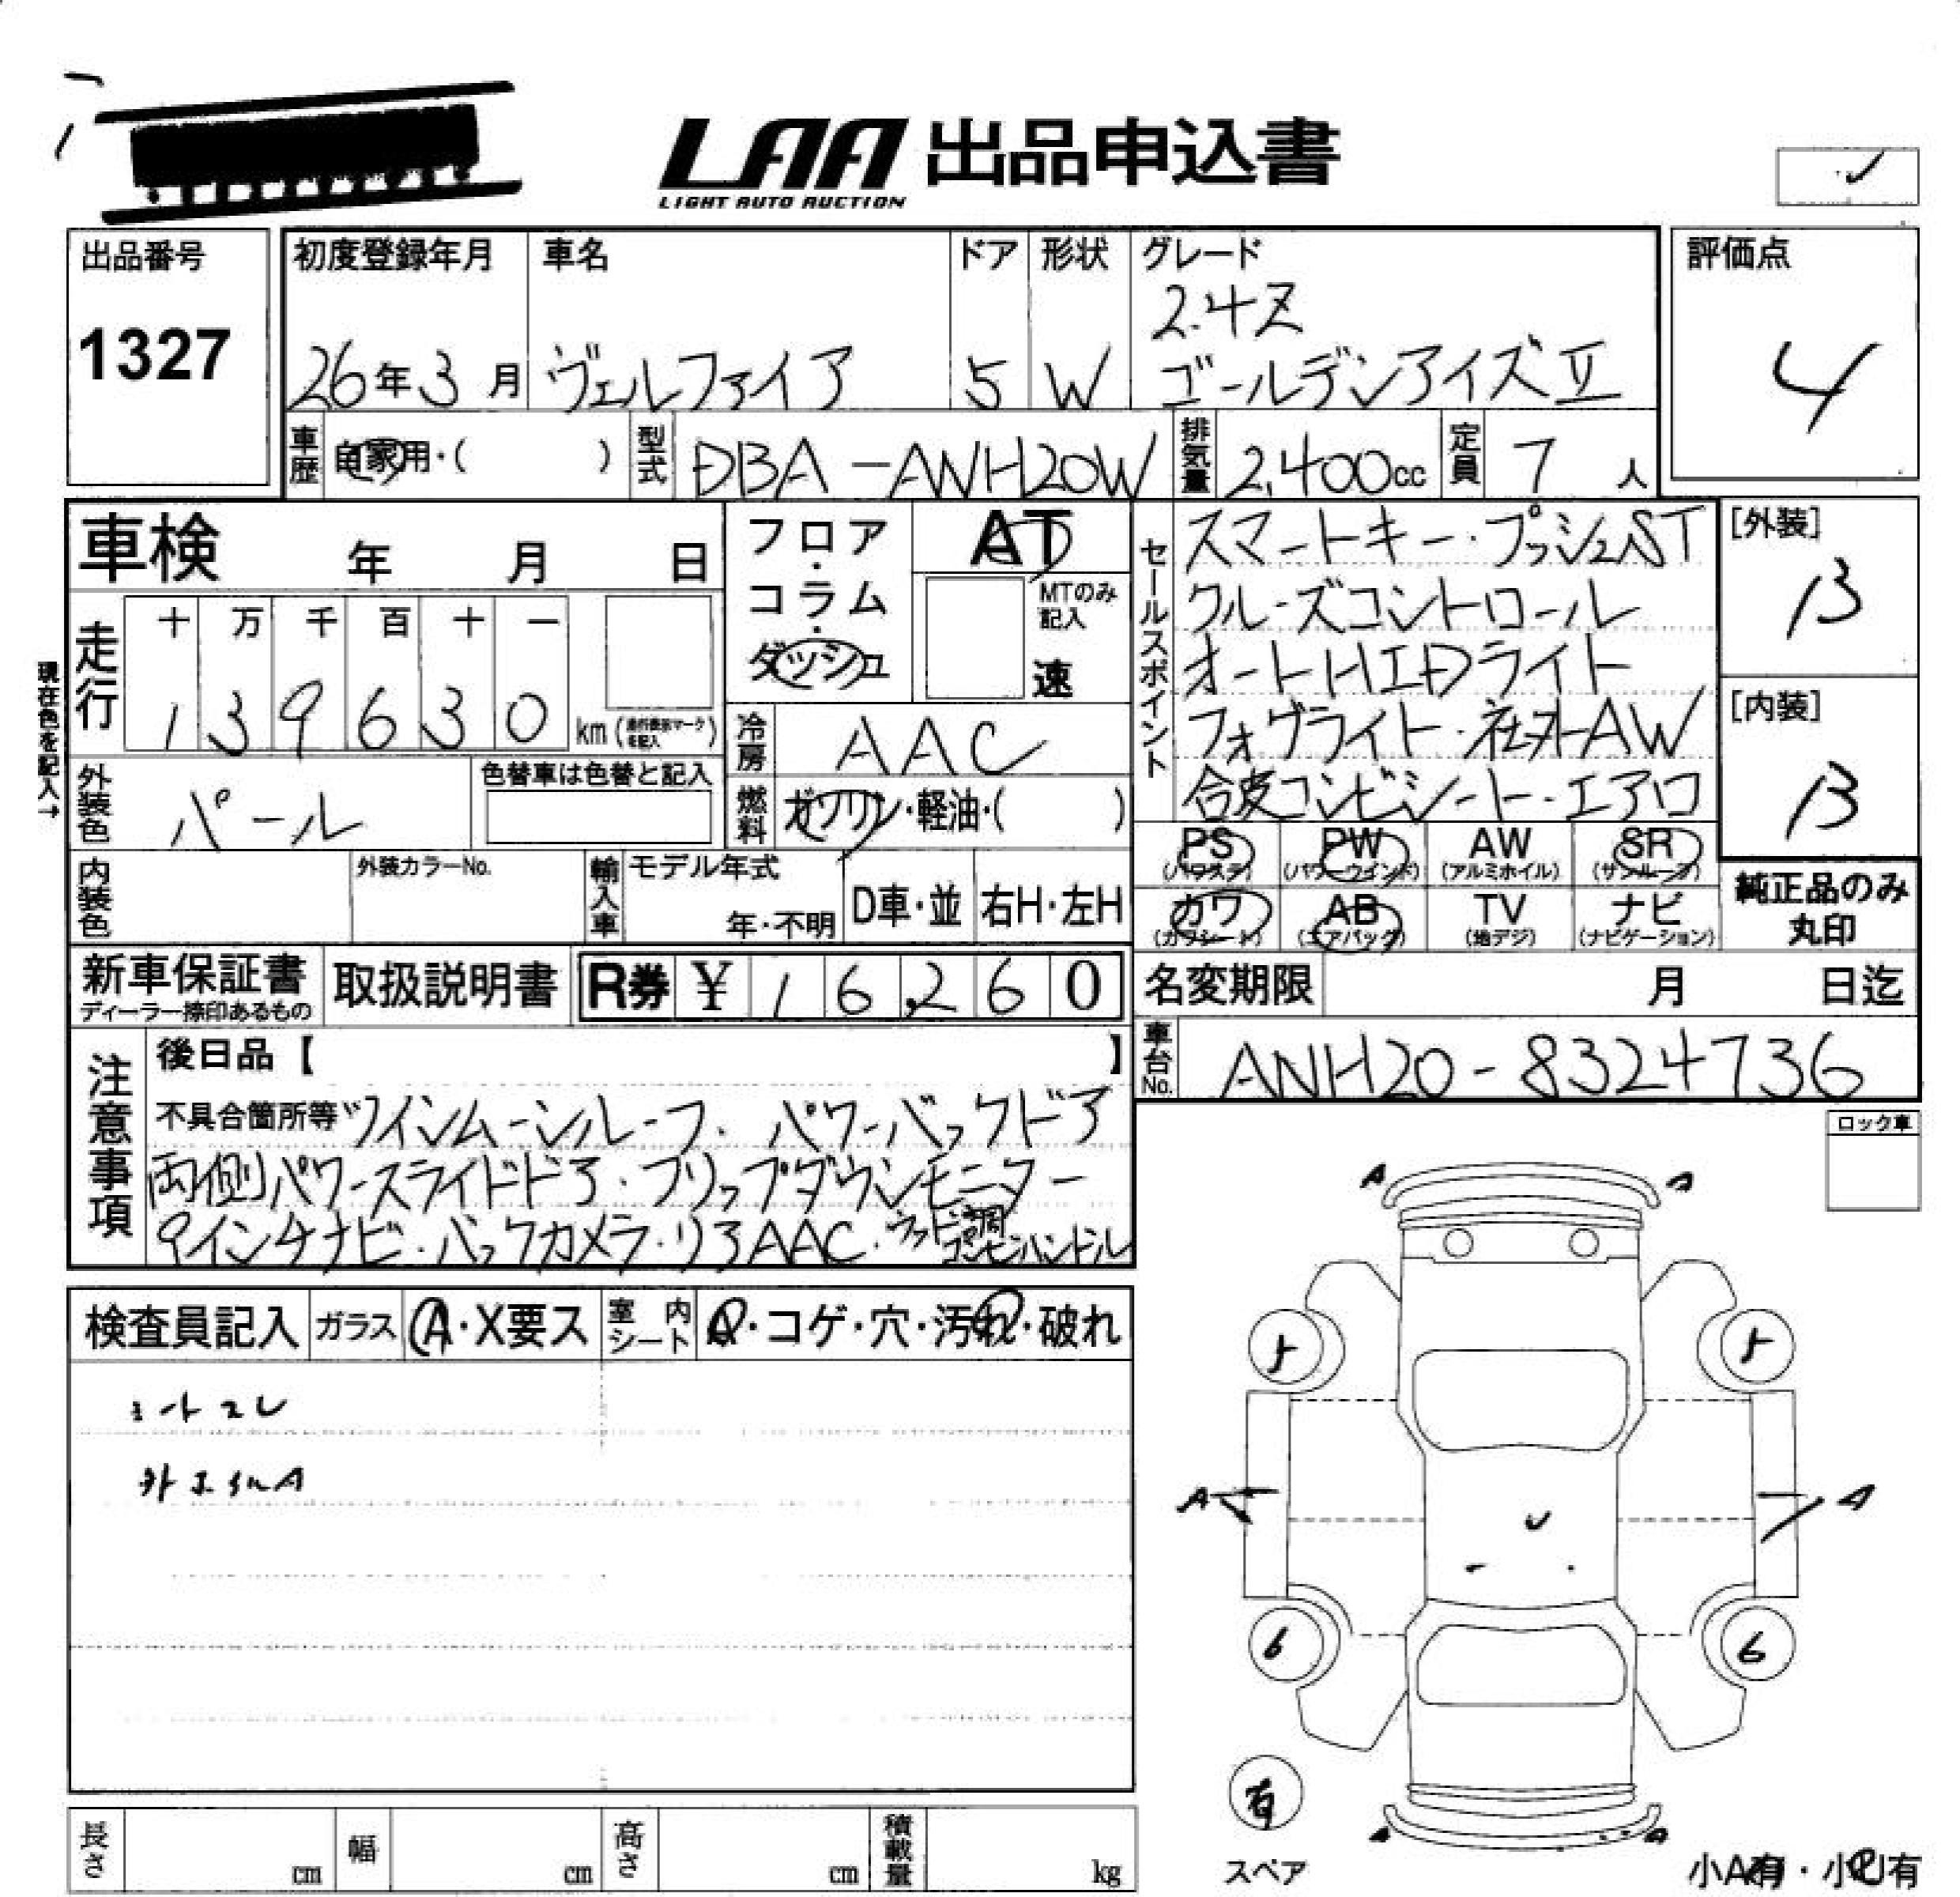 LAA 出品申込書
LIGHT AUTO AUCTION
出品番号
1327
初度登録年月
26年3月
車名
ヴェルファイア
ドア
5
形状
W
グレード
2.4Z
ゴールデンアイズⅡ
評価点
4
車歴 自家用・( )
型式 DBA-ANH20W
排気量 2,400cc
定員 7人
車検 年 月 日
フロア・コラム・ダッシュ
AT
MTのみ記入
速
走行
十 万 千 百 十 一
1 3 9 6 3 0 km
現在色を記入→
冷房 AAC
燃料 ガソリン・軽油・( )
外装色 パール
色替車は色替と記入
内装色
外装カラーNo.
輸入車
モデル年式
年・不明
D車・並
右H・左H
セールスポイント
スマートキー・プッシュST
クルーズコントロール
オートHIDライト
フォグライト・社外AW
合皮コンビシート・エアロ
[外装]
B
[内装]
B
PS (パワステ)
PW (パワーウインド)
AW (アルミホイル)
SR (サンルーフ)
カワ (カワシート)
AB (エアバッグ)
TV (地デジ)
ナビ (ナビゲーション)
純正品のみ丸印
新車保証書
ディーラー捺印あるもの
取扱説明書
R券 ¥ 16,260
名変期限 月 日迄
車台No. ANH20-8324736
注意事項
後日品【 】
不具合箇所等 ツインムーンルーフ・パワーバックドア
両側パワースライドドア・フリップダウンモニター
9インチナビ・バックカメラ・リアAAC・ウッド調コンビハンドル
ロック車
検査員記入
ガラス A・X要ス
室内シート A・コゲ・穴・汚れ・破れ
A A
5 5
A A
6 6
有
スペア
A A
小A有・小U有
長さ cm
幅 cm
高さ cm
積載量 kg